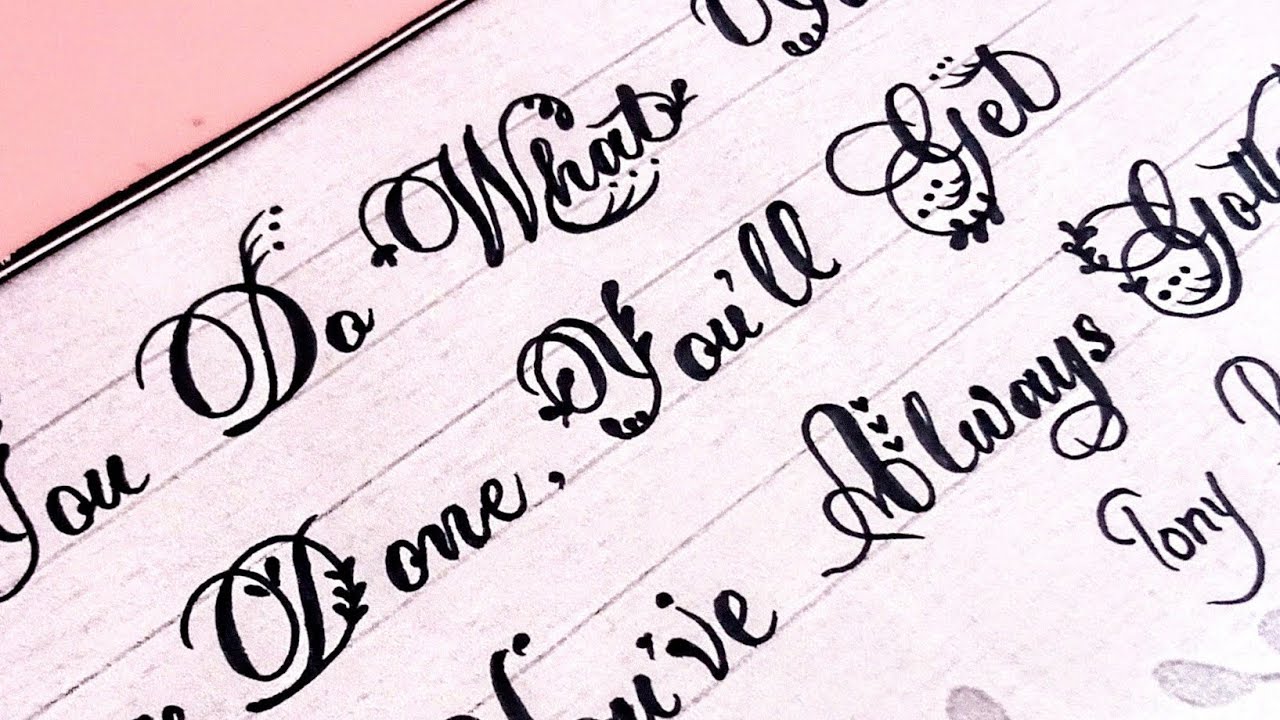 You Do What
Done, You'll Get
You've Always Gott
Tony